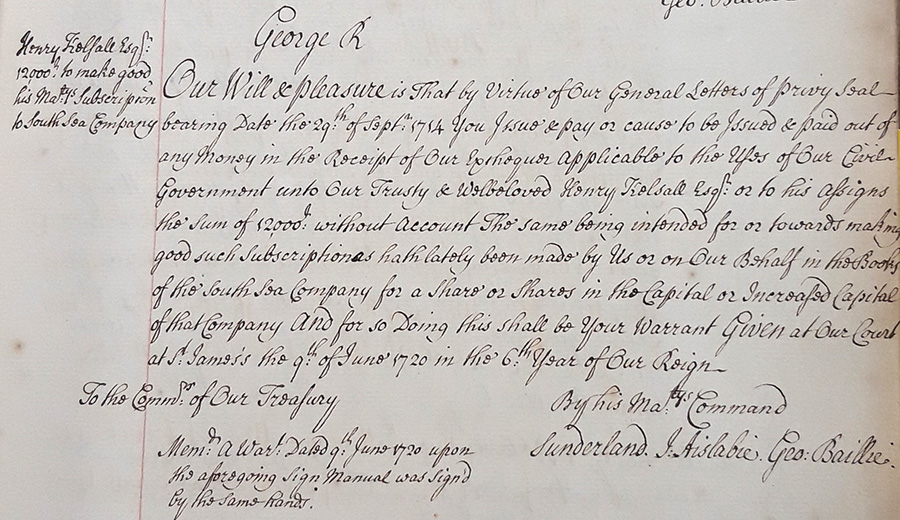 Geo: Baillie
George R
Henry Kelsall Esqr.
12000l. to make good
his Matys. Subscription
to South Sea Company
Our Will & pleasure is That by Virtue of Our General Letters of Privy Seal
bearing Date the 29th of Septr. 1714 You Issue & pay or cause to be Issued & paid out of
any Money in the Receipt of Our Exchequer Applicable to the Uses of Our Civil
Government unto Our Trusty & Welbeloved Henry Kelsall Esqr. or to his Assigns
the Sum of 12000l. without Account The same being intended for or towards making
good such Subscription as hath lately been made by Us or on Our Behalf in the Books
of the South Sea Company for a Share or Shares in the Capital or Increased Capital
of that Company And for so Doing this shall be Your Warrant Given at Our Court
at St. James's the 9th of June 1720 in the 6th Year of Our Reign
To the Commrs. of Our Treasury
By his Matys. Command
Sunderland. J. Aislabie. Geo: Baillie.
Memd. A Wart. Dated 9th June 1720 upon
the aforegoing Sign Manual was sign'd
by the same hands.